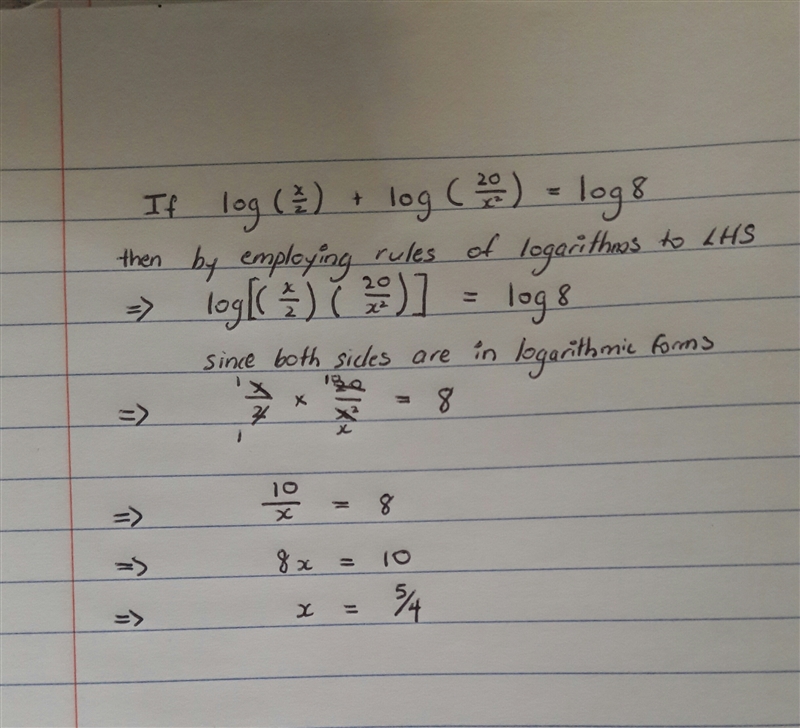 If log(x/2) + log(20/x²) = log8
then by employing rules of logarithms to LHS
⇒ log[(x/2)(20/x²)] = log8
since both sides are in logarithmic forms
⇒ 1 x/2 1 × 10 20/x² x = 8
⇒ 10/x = 8
⇒ 8x = 10
⇒ x = 5/4